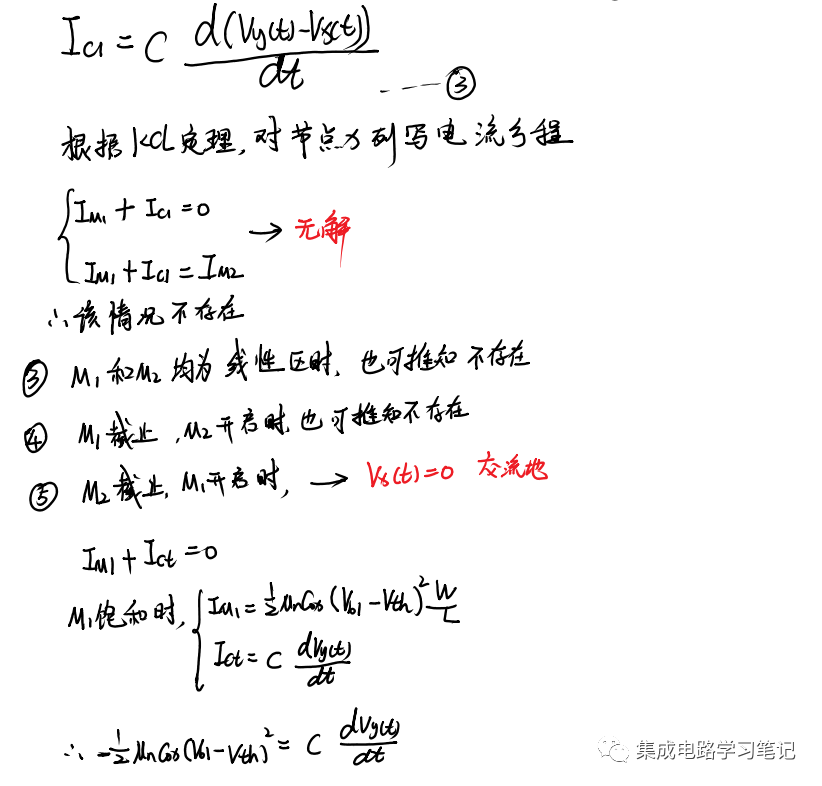 I_{C1} = C \frac{d(V_y(t)-V_x(t))}{dt} ----- ③
根据KCL定理,对节点为列写电流方程
I_{M1} + I_{C1} = 0
→ 无解
I_{M1} + I_{C1} = I_{M2}
∴该情况不存在
③ M_1和M_2均为线性区时,也可推知不存在
④ M_1截止,M_2开启时,也可推知不存在
⑤ M_2截止,M_1开启时, → V_x(t)=0 交流地
I_{M1} + I_{Ct} = 0
M_1饱和时, { I_{M1} = \frac{1}{2} μ_n C_{ox} (V_{b1} - V_{th})^2 \frac{W}{L}
I_{Ct} = C \frac{dV_y(t)}{dt}
∴ -\frac{1}{2} μ_n C_{ox} (V_{b1} - V_{th})^2 = C \frac{dV_y(t)}{dt}
集成电路学习笔记